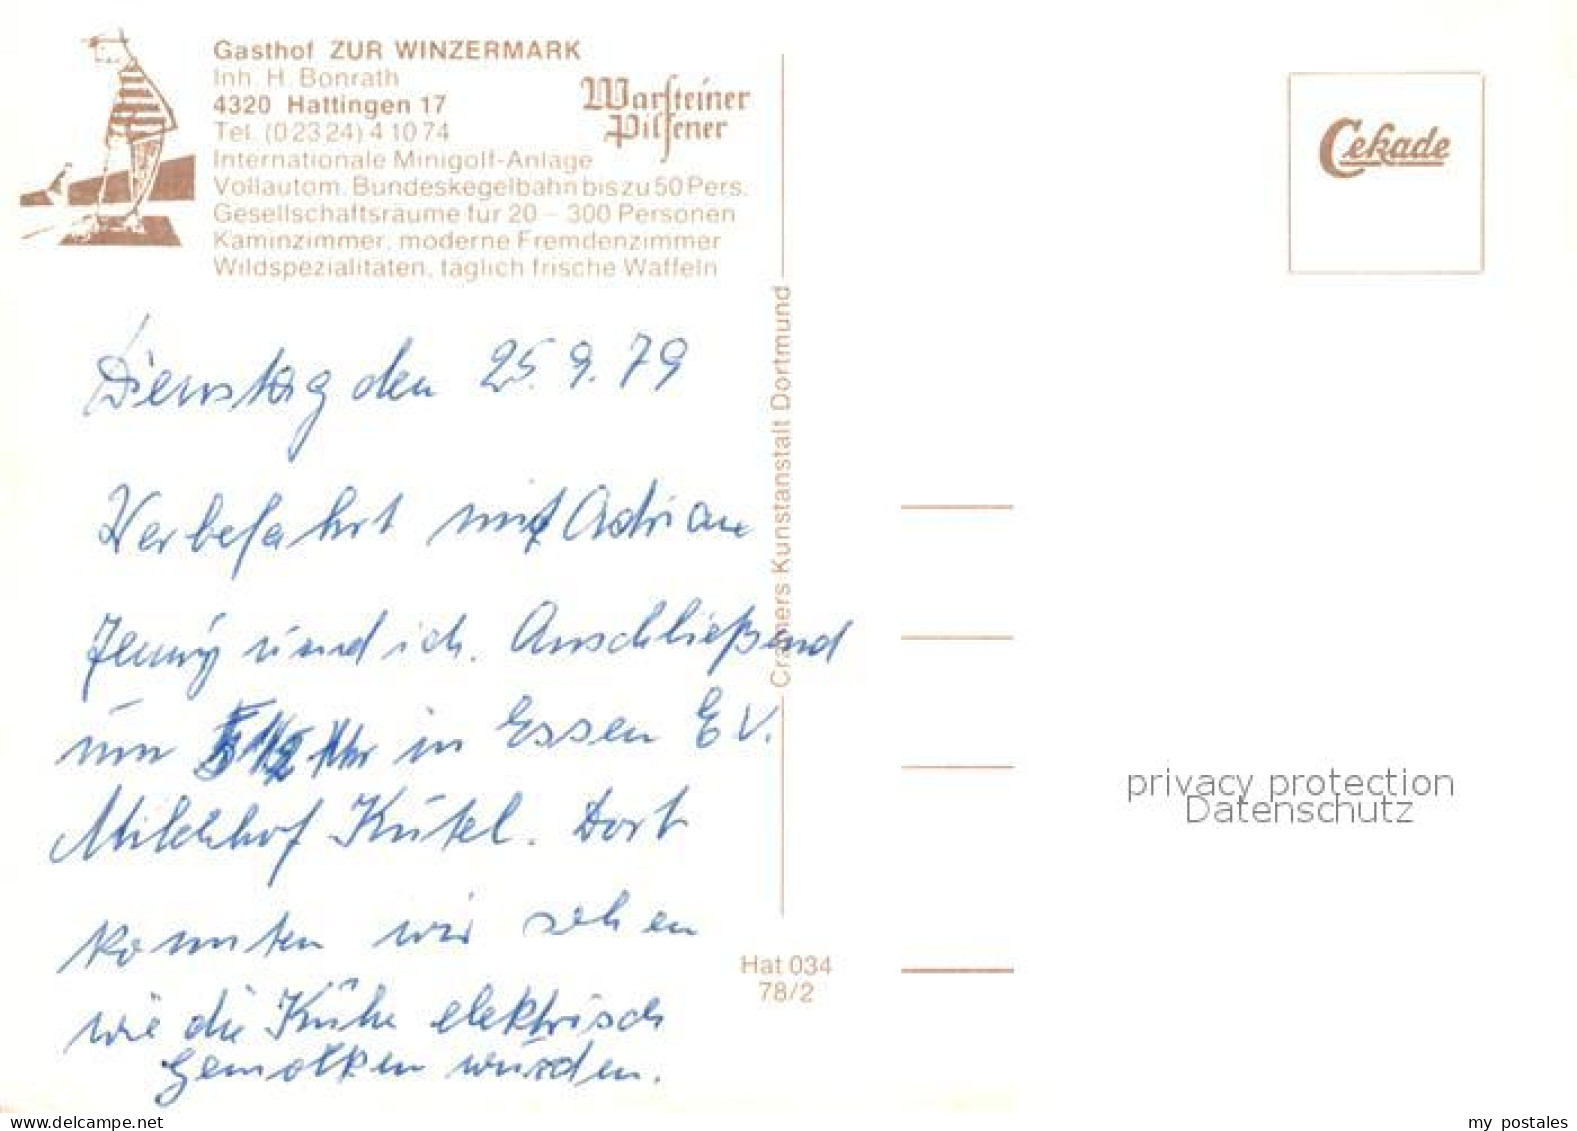 Gasthof ZUR WINZERMARK
Inh. H. Bonrath
4320 Hattingen 17
Tel. (0 23 24) 4 10 74
Warsteiner
Pilsener
Internationale Minigolf-Anlage
Vollautom. Bundeskegelbahn bis zu 50 Pers.
Gesellschaftsräume für 20 – 300 Personen
Kaminzimmer, moderne Fremdenzimmer
Wildspezialitäten, täglich frische Waffeln
Cekade
Dienstag den 25. 9. 79
Werbefahrt mit Adrian
Jenny und ich. Anschließend
um Uhr in Essen E V.
Milchhof Kütel. Dort
konnten wir sehen
wie die Kühe elektrisch
gemolken wurden.
Cramers Kunstanstalt Dortmund
Hat 034
78/2
privacy protection
Datenschutz
my postales
www.delcampe.net